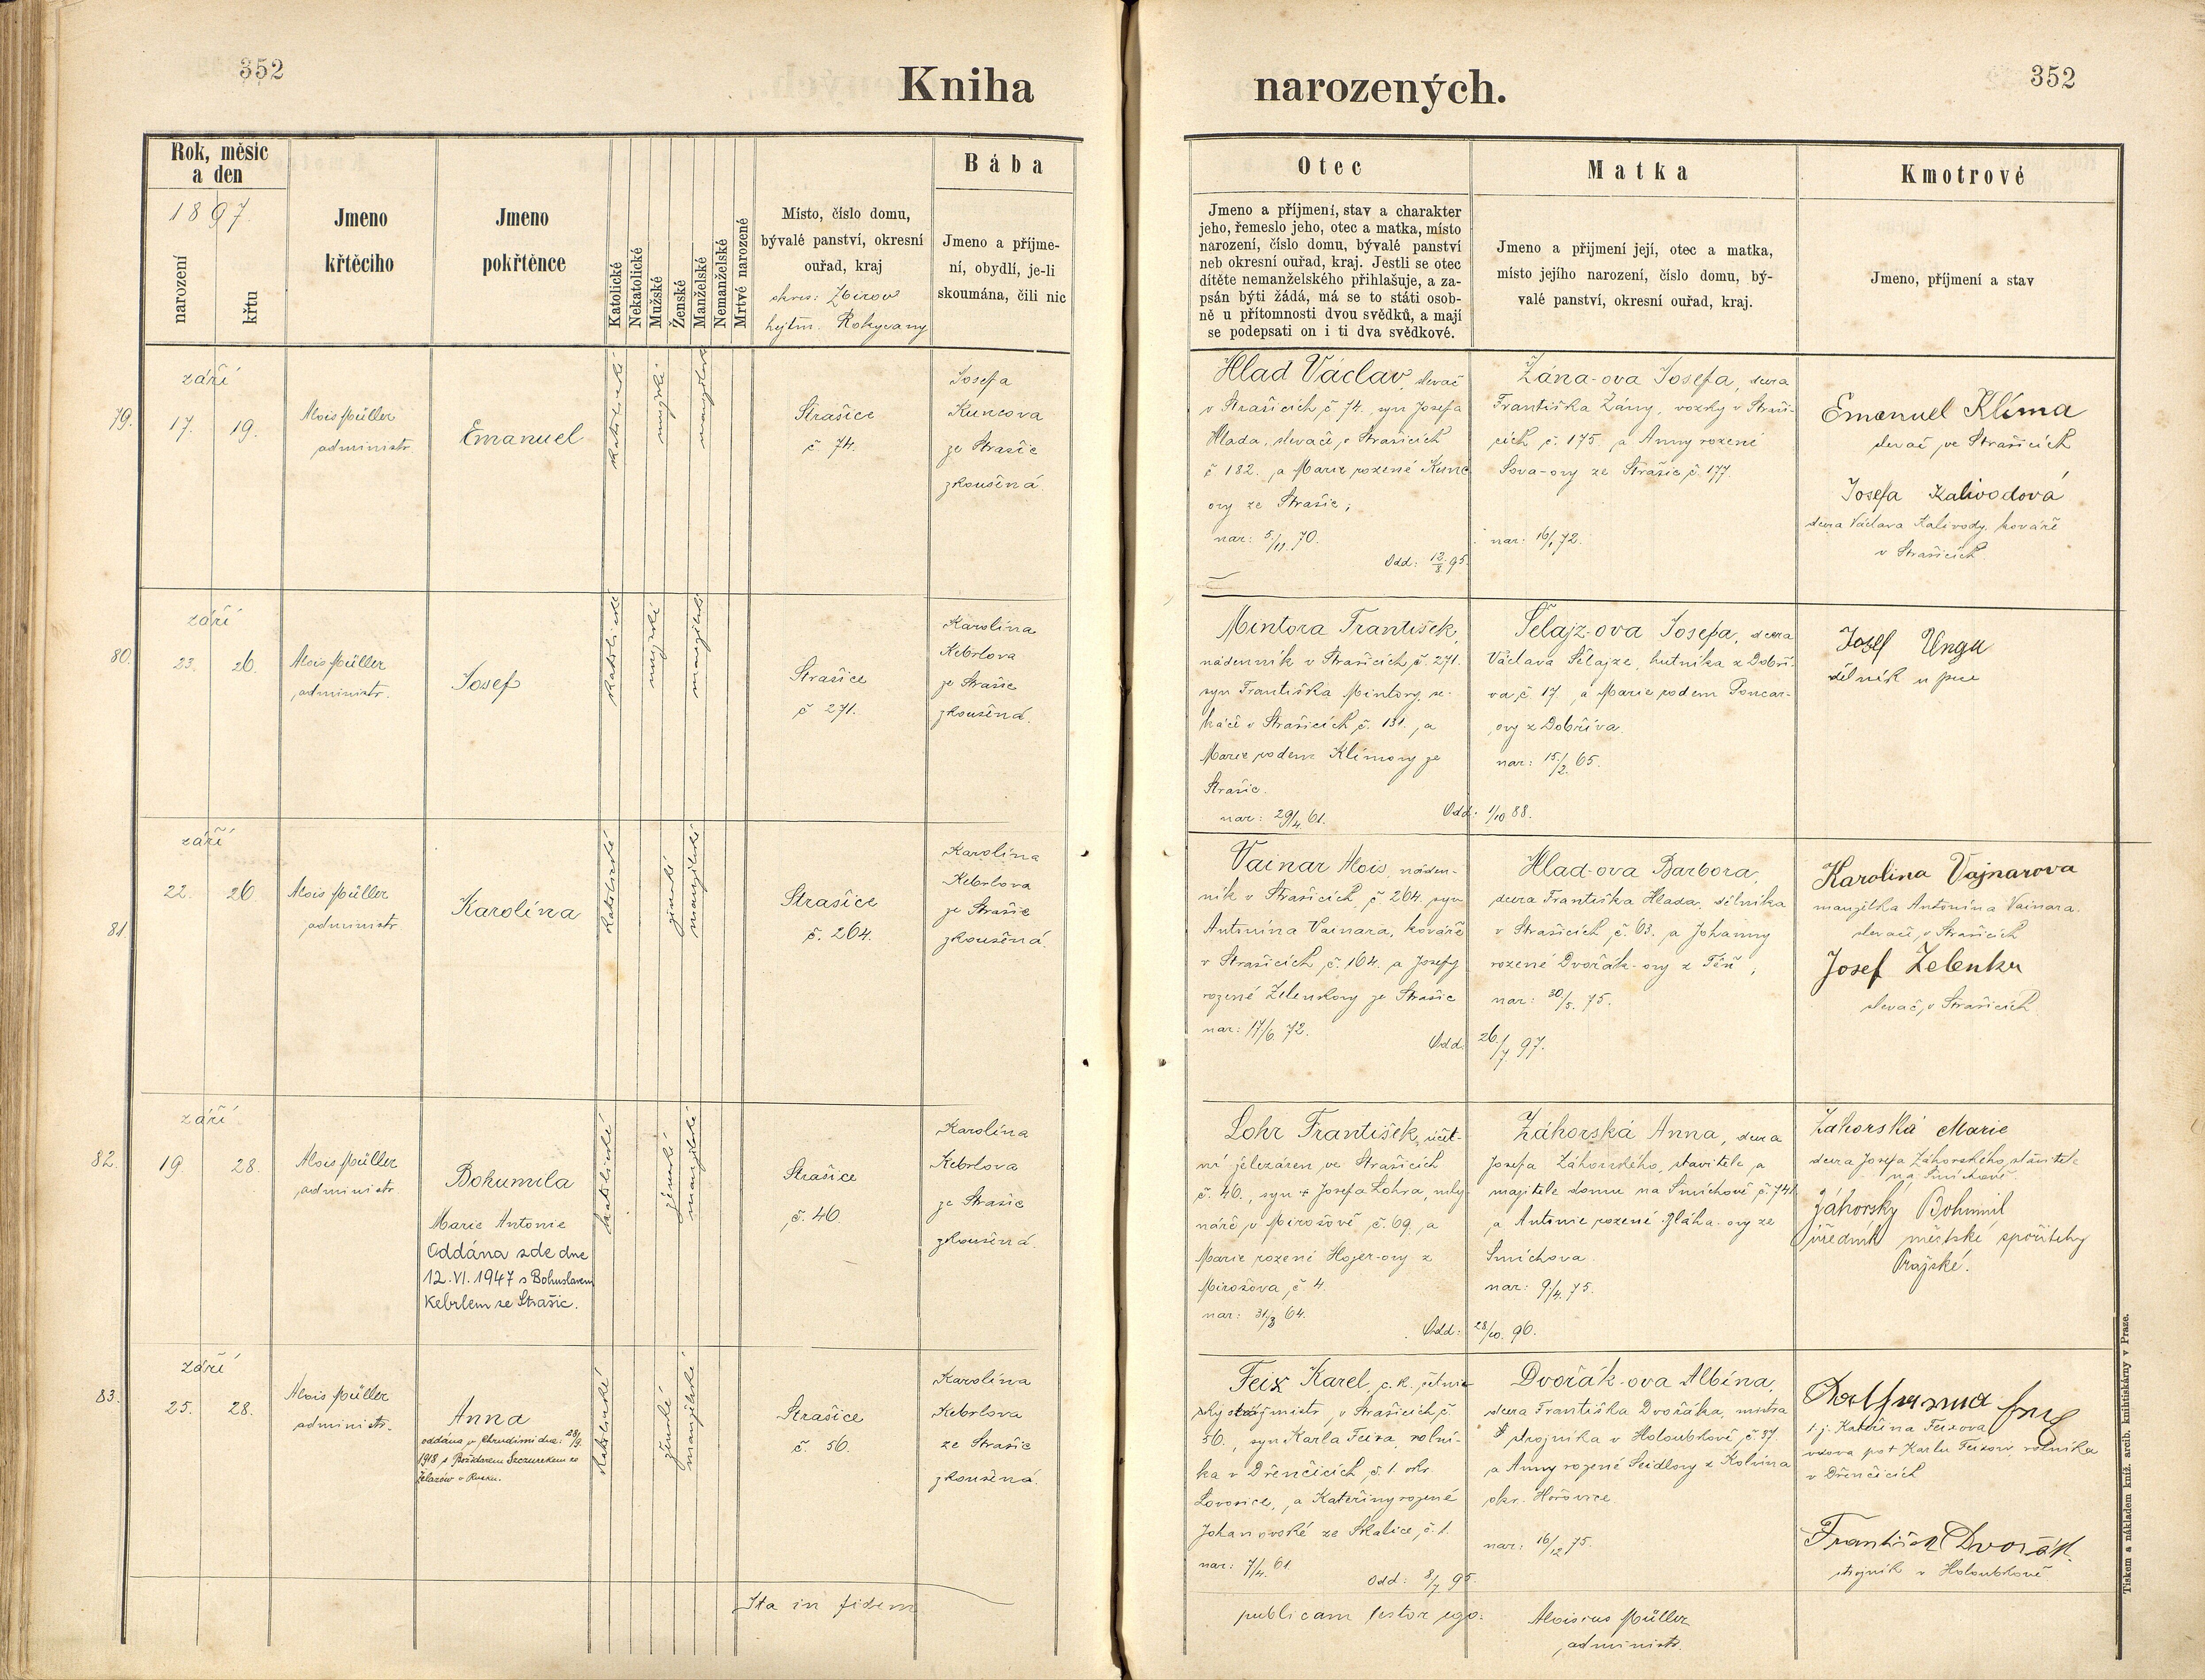 352
Kniha
narozených.
352
Rok, měsíc
a den
1897.
narození
křtu
Jmeno
křtěcího
Jmeno
pokřtěnce
Katolické
Nekatolické
Mužské
Ženské
Manželské
Nemanželské
Mrtvé narozené
Místo, číslo domu,
bývalé panství, okresní
ouřad, kraj
okres: Zbirov
hejtm. Rokycany
Bába
Jmeno a příjme-
ní, obydlí, je-li
skoumána, čili nic
Otec
Jmeno a příjmení, stav a charakter
jeho, řemeslo jeho, otec a matka, místo
narození, číslo domu, bývalé panství
neb okresní ouřad, kraj. Jestli se otec
dítěte nemanželského přihlašuje, a za-
psán býti žádá, má se to státi osob-
ně u přítomnosti dvou svědků, a mají
se podepsati on i ti dva svědkové.
Matka
Jmeno a přijmení její, otec a matka,
místo jejího narození, číslo domu, bý-
valé panství, okresní ouřad, kraj.
Kmotrové
Jmeno, příjmení a stav
79.
září
17. 19.
Alois Müller
administr.
Emanuel
katolické
mužské
manželské
Strašice
č 74.
Josefa
Kuncova
ze Strašic
zkoušená.
Hlad Václav, slevač
v Strašicích č. 74. syn Josefa
Hlada, slevače v Strašicích
č 182. a Marie rozené Kunc
ovy ze Strašic,
nar: 5/11. 70.
Odd: 12/8 95.
Zána-ova Josefa, dcera
Františka Zány, vozky v Straši-
cích č. 175. a Anny rozené
Sova-ovy ze Strašic č. 177.
nar: 16/1 72.
Emanuel Klíma
slevač ve Strašicích
Josefa Kalivodová
dcera Václava Kalivody, kováře
v Strašicích
80.
září
23. 26.
Alois Müller
administr.
Josef
katolické
mužské
manželské
Strašice
č 271.
Karolina
Kebrlova
ze Strašic
zkoušená.
Mintora František,
nádenník v Strašicích č. 271.
syn Františka Mintory, se-
kače v Strašicích č. 131. a
Marie rodem Klímovy ze
Strašic.
nar: 29/4 61.
Odd: 1/10 88.
Šelajz-ova Josefa, dcera
Václava Šelajze, hutníka z Dobří-
va č 17. a Marie rodem Poncar-
ovy z Dobříva.
nar: 15/2. 65.
Josef Ungr
dělník u pece
81
září
22. 26
Alois Müller
administr
Karolina
katolické
ženské
manželské
Strašice
č. 264.
Karolina
Kebrlova
ze Strašic
zkoušená.
Vainar Alois, náden-
ník v Strašicích č 264. syn
Antonína Vainara, kováře
v Strašicích č. 164. a Josefy
rozené Zelenkovy ze Strašic
nar: 17/6 72.
Odd: 26/7. 97.
Hlad-ova Barbora,
dcera Františka Hlada, dělníka
v Strašicích č. 63. a Johanny
rozené Dvořák-ovy z Těň,
nar: 30/5. 75.
Karolina Vajnarova
manželka Antonína Vainara,
slevače v Strašicích
Josef Zelenka
slevač v Strašicích
82.
září
19. 28.
Alois Müller
administr
Bohumila
Marie Antonie
Oddána zde dne
12. VI. 1947 s Bohuslavem
Kebrlem ze Strašic.
katolické
ženské
manželské
Strašice
č. 46.
Karolína
Kebrlova
ze Strašic
zkoušená.
Lohr František, účet-
ní železáren ve Strašicích
č. 46., syn Josefa Lohra, mly-
náře v Mirošově č. 69. a
Marie rozené Hojer-ovy z
Mirošova č 4.
nar: 31/3 64.
Odd: 28/10. 96.
Záhorská Anna, dcera
Josefa Záhorského, stavitele a
majitele domu na Smíchově č. 741
a Antonie rozené Bláha-ovy ze
Smíchova.
nar: 9/4. 75.
Záhorská Marie
dcera Josefa Záhorského, stavitele
na Smíchově.
Záhorský Bohumil
úředník městské spořitelny
Pražské.
83.
září
25. 28.
Alois Müller
administr.
Anna
oddána v Chrudimi dne: 28/9.
1918 s Božidarem Szczurekem ze
Želazów v Rusku.
katolické
ženské
manželské
Strašice
č. 56.
Karolina
Kebrlova
ze Strašic
zkoušená.
Feix Karel, c. k. četnic-
ký strážmistr v Strašicích č.
56., syn Karla Feixa, rolní-
ka v Dřenčicích č. 1. okr.
Lovosice, a Kateřiny rozené
Johanovské ze Skalice č. 1.
nar: 7/4. 61.
Odd: 8/7 95.
Dvořák-ova Albína,
dcera Františka Dvořáka, mistra
strojníka v Holoubkově č. 37.
a Anny rozené Seidlovy z Kolvína
okr. Hořovice
nar: 16/12 75.
t. j. Kateřina Feixova
vdova po Karlu Feixovi, rolníka
v Dřenčicích
František Dvořák
strojník v Holoubkově
Ita in fidem
publicam testor ego:
Aloisius Müller
administr.
Tiskem a nákladem kníž. arcib. knihtiskárny v Praze.